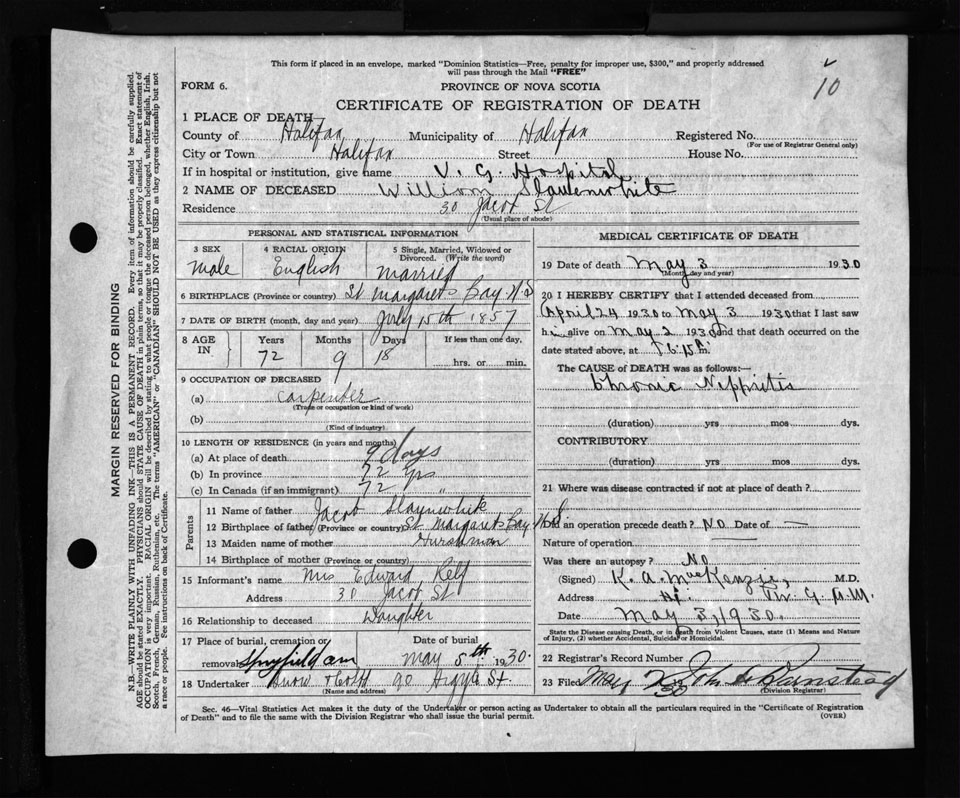 This form if placed in an envelope, marked "Dominion Statistics—Free, penalty for improper use, $300," and properly addressed
will pass through the Mail "FREE"
10
FORM 6.
PROVINCE OF NOVA SCOTIA
CERTIFICATE OF REGISTRATION OF DEATH
1 PLACE OF DEATH
County of Halifax Municipality of Halifax Registered No.
(For use of Registrar General only)
City or Town Halifax Street House No.
If in hospital or institution, give name V. G. Hospital
2 NAME OF DECEASED William Slauenwhite
Residence 30 Jacob St
(Usual place of abode)
PERSONAL AND STATISTICAL INFORMATION
3 SEX 4 RACIAL ORIGIN 5 Single, Married, Widowed or
Divorced. (Write the word)
Male English married
6 BIRTHPLACE (Province or country) St Margarets Bay N.S
7 DATE OF BIRTH (month, day and year) July 15th 1857
8 AGE IN Years Months Days If less than one day,
72 9 18 hrs. or min.
9 OCCUPATION OF DECEASED
(a) Carpenter
(Trade or occupation or kind of work)
(b)
(Kind of industry)
10 LENGTH OF RESIDENCE (in years and months)
(a) At place of death 9 days
(b) In province 72 yrs
(c) In Canada (if an immigrant) 72 "
Parents
11 Name of father Jacob Slaunwhite
12 Birthplace of father (Province or country) St Margarets Bay N.S.
13 Maiden name of mother
14 Birthplace of mother (Province or country)
15 Informant's name Mrs Edward Relf
Address 30 Jacob St
16 Relationship to deceased Daughter
17 Place of burial, cremation or Date of burial
removal May 5th 1930.
18 Undertaker Snow 90 Argyle St.
(Name and address)
MEDICAL CERTIFICATE OF DEATH
19 Date of death May 3 1930
(Month, day and year)
20 I HEREBY CERTIFY that I attended deceased from
April 24 1930 to May 3 1930 that I last saw
him alive on May 2 1930 and that death occurred on
date stated above, at 6.15 m.
The CAUSE OF DEATH was as follows:—
Chronic Nephritis
(duration) yrs mos dys.
CONTRIBUTORY
(duration) yrs mos dys.
21 Where was disease contracted if not at place of death?
Did an operation precede death? No Date of —
Nature of operation —
Was there an autopsy? No
(Signed) K. A. MacKenzie, M.D.
Address
Date May 3, 1930.
State the Disease causing Death, or in death from Violent Causes, state (1) Means and Nature
of Injury, (2) whether Accidental, Suicidal or Homicidal.
22 Registrar's Record Number
23 Filed May 30
(Division Registrar)
Sec. 46—Vital Statistics Act makes it the duty of the Undertaker or person acting as Undertaker to obtain all the particulars required in the "Certificate of Registration
of Death" and to file the same with the Division Registrar who shall issue the burial permit. (OVER)
MARGIN RESERVED FOR BINDING
N.B.—WRITE PLAINLY WITH UNFADING INK—THIS IS A PERMANENT RECORD. Every item of information should be carefully supplied.
AGE should be stated EXACTLY. PHYSICIANS should STATE CAUSE OF DEATH in plain terms, so that it may be properly classified. Exact statement of
OCCUPATION is very important. RACIAL ORIGIN will be described by stating to what people or tongue the deceased person belonged, whether English, Irish,
Scotch, French, German, Russian, Ruthenian, etc. The terms "AMERICAN" or "CANADIAN" SHOULD NOT BE USED as they express citizenship but not
a race or people. See instructions on back of Certificate.